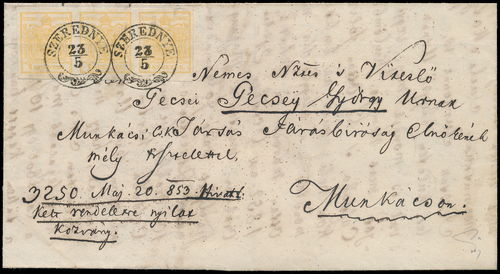 SZEREDNYE 23/5 SZEREDNYE 23/5
Nemes Nztes és Vitézlő
Gecsei Gecsey György Urnak
Munkácsi Társas Járásbiróság Elnökének
mély tisztelettel.
3250 Maj. 20. 853 Hivatl.
Kéz rendeletre nyilat
kozvány.
Munkácson.